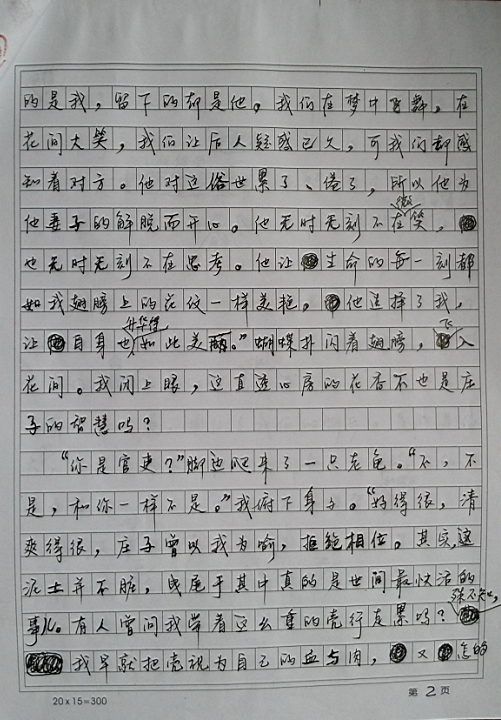 的是我，留下的却是他。我们在梦中飞舞，在
花间大笑，我们让后人疑惑已久，可我们却感
知着对方。他对这俗世累了、倦了，所以他为
他妻子的解脱而开心。他无时无刻不在微笑，
也无时无刻不在思考。他让生命的每一刻都
如我翅膀上的花纹一样美艳，他选择了我，
让自身也升华得如此美丽。”蝴蝶扑闪着翅膀，飞入
花间。我闭上眼，这直透心房的花香不也是庄
子的智慧吗？
“你是官吏？”脚边爬来了一只老龟。“不，不
是，和你一样不是。”我俯下身子。“好得很，清
爽得很，庄子曾以我为喻，拒绝相位。其实，这
泥土并不脏，曳尾于其中真的是世间最快活的
事儿。有人曾问我带着这么重的壳行走累吗？殊不知，
我早就把壳视为自己的血与肉，又怎的
20×15=300
第 2 页